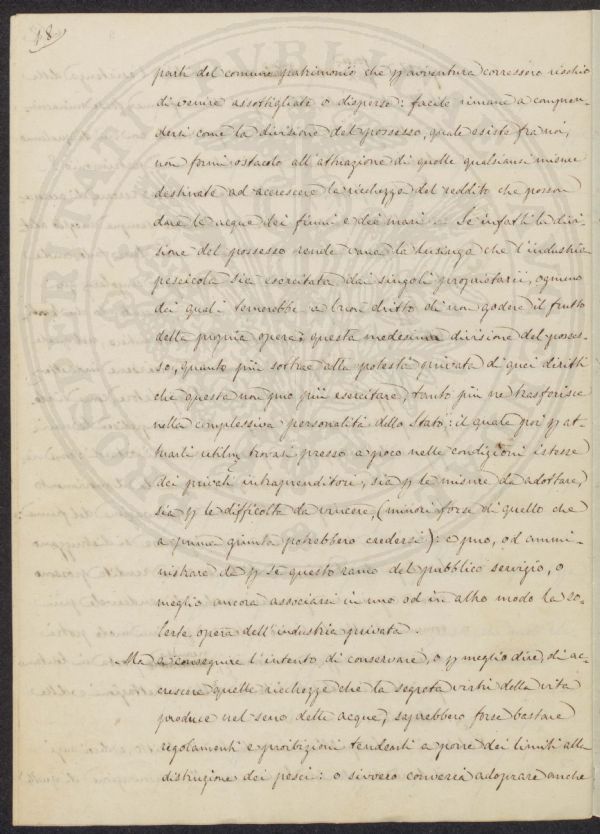 18.
parti del comune patrimonio che p avventura corressero rischio
di venire assottigliate o disperse: facile rimane a compren-
dersi come la divisione del possesso, quale esiste fra noi,
non formi ostacolo all'attuazione di quelle qualsiansi misure
destinate ad accrescere la ricchezza del reddito che posson
dare le acque dei fiumi e dei mari. — Se infatti la divi-
sione del possesso rende vana la lusinga che l'industria
pescicola sia esercitata dai singoli proprietarii, ognuno
dei quali temerebbe a buon dritto di non godere il frutto
della propria opera; questa medesima divisione del posses-
so, quanto più sottrae alla potestà privata di quei diritti
che questa non può più esercitare, tanto più ne trasferisce
nella complessiva personalità dello Stato: il quale poi p at-
tuarli utilm trovasi presso a poco nelle condizioni istesse
dei privati intraprenditori, sia p le misure da adottare,
sia p le difficoltà da vincere, (minori forse di quello che
a prima giunta potrebbero credersi): e può, od ammi-
nistrare da p se questo ramo del pubblico servizio, o
meglio ancora associarsi in uno od in altro modo la so-
lerte opera dell'industria privata.
Ma a conseguire l'intento di conservare, o p meglio dire, di ac-
crescere quelle ricchezze che la segreta virtù della vita
produce nel seno delle acque, saprebbero forse bastare
regolamenti e proibizioni tendenti a porre dei limiti alla
distruzione dei pesci: o sivvero converrà adoprare anche